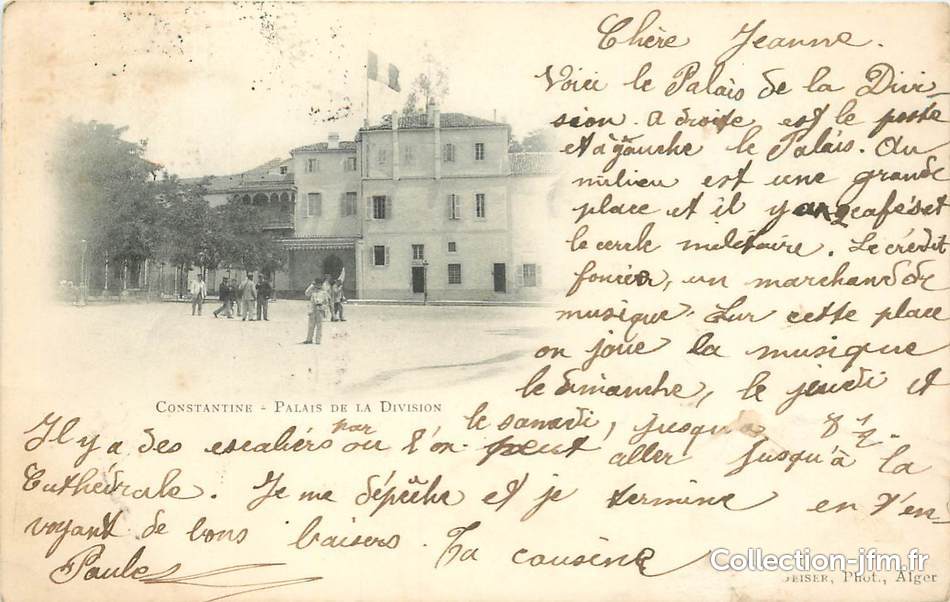 Chère Jeanne.
Voici le Palais de la Divi-
sion. A droite est le poste
et à gauche le Palais. Au
milieu est une grande
place et il y a un café et
le cercle militaire. Le crédit
foncier, un marchand de
musique. Sur cette place
on joue la musique
le dimanche, le jeudi et
le samedi, jusqu'à
CONSTANTINE - PALAIS DE LA DIVISION
Il y a des escaliers par où l'on peut aller jusqu'à la
Cathédrale. Je me dépêche et je termine en t'en-
voyant de bons baisers. Ta cousine
Paule
Collection-jfm.fr
GEISER, PHOT., ALGER